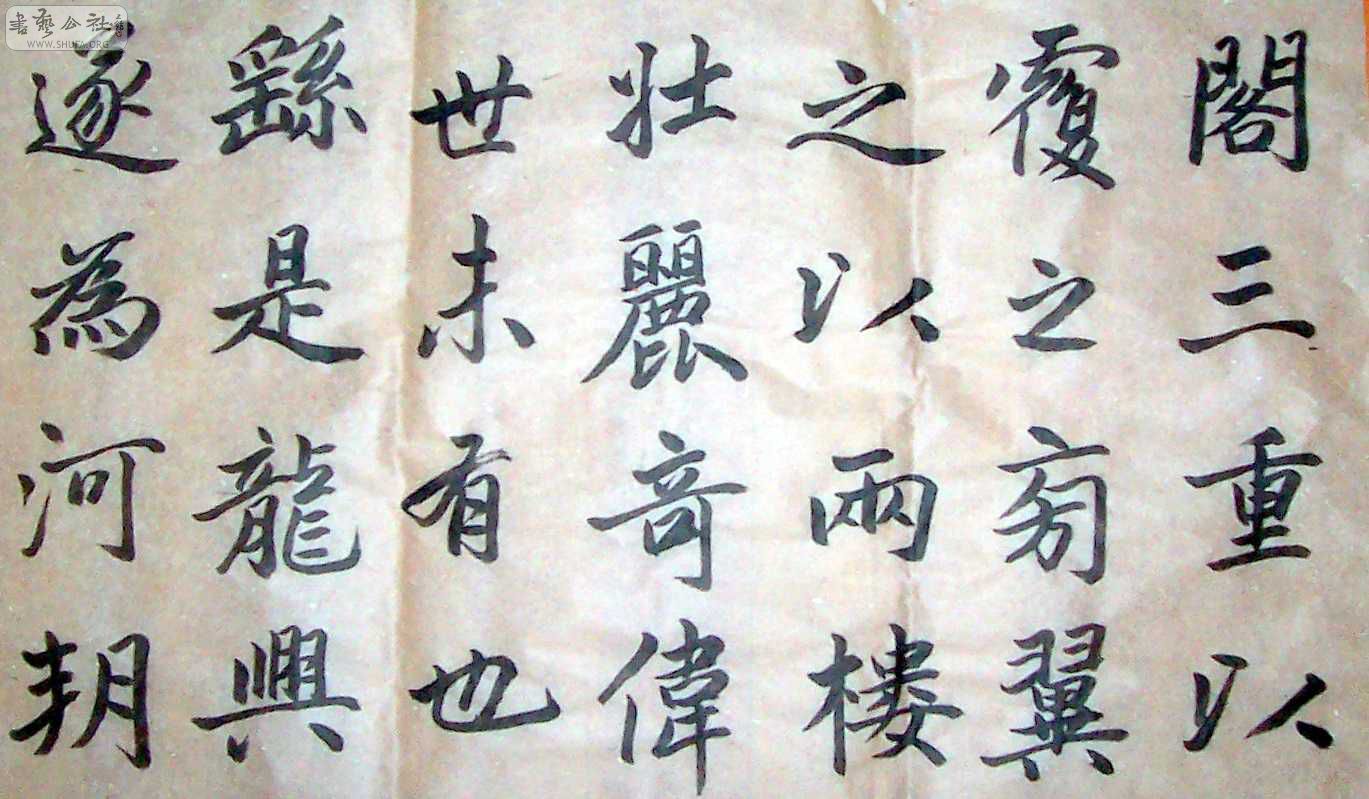 閣三重以
覆之旁翼
之以兩樓
壯麗奇偉
世未有也
繇是龍興
遂為河朔
書藝公社
WWW.SHUFA.ORG